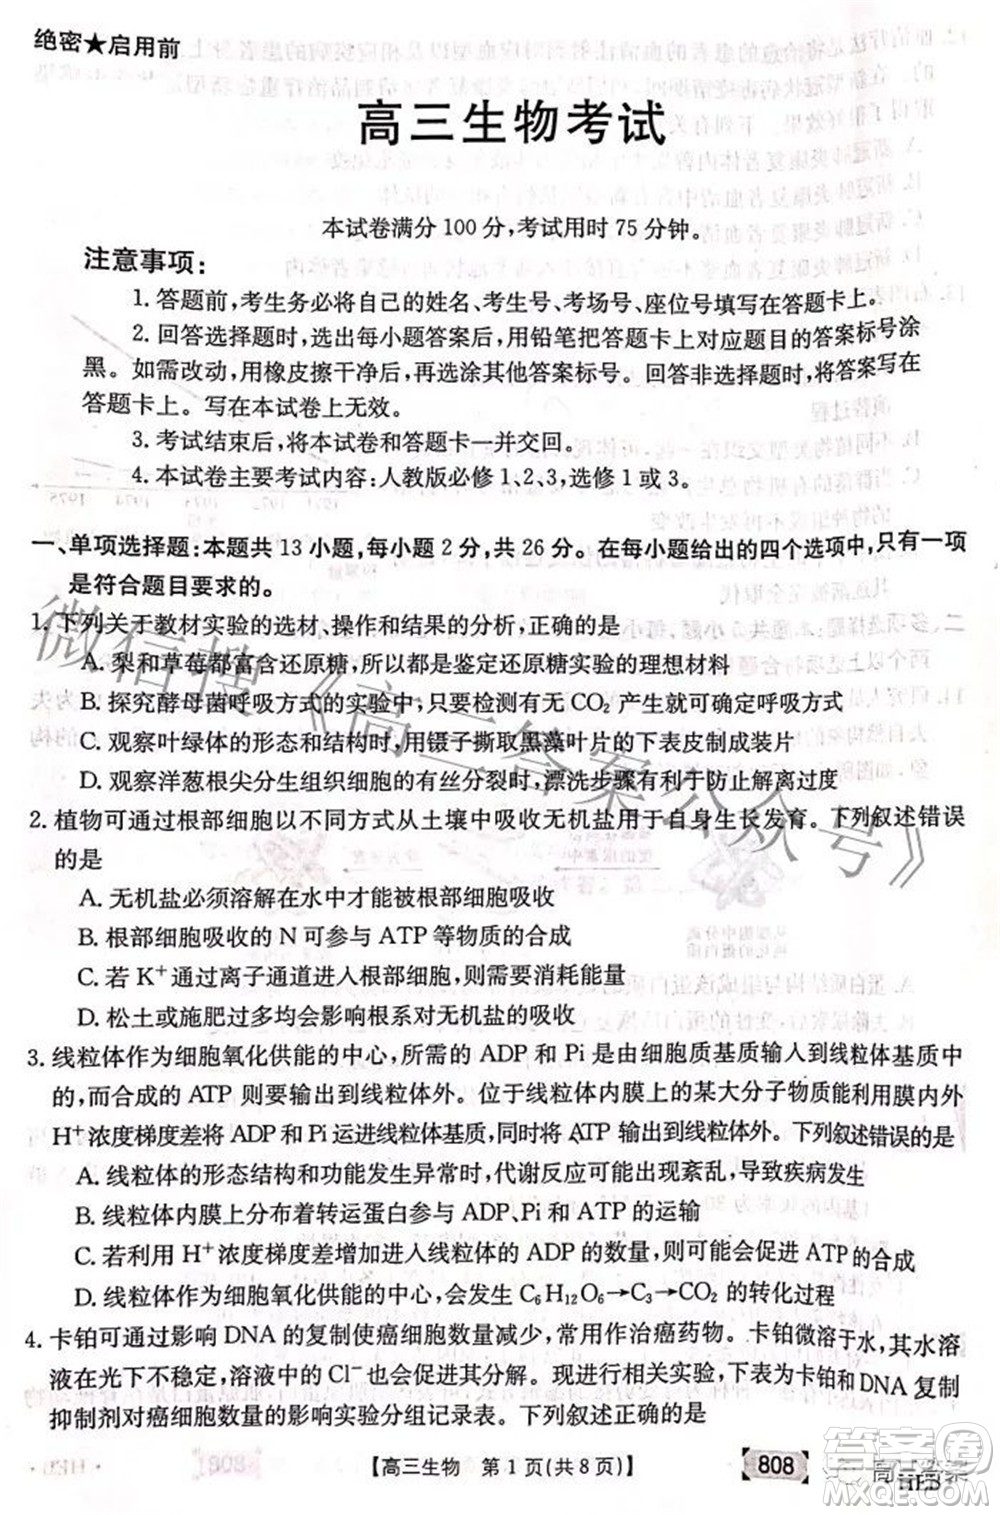 绝密★启用前
高三生物考试
本试卷满分100分,考试用时75分钟。
注意事项:
1. 答题前,考生务必将自己的姓名、考生号、考场号、座位号填写在答题卡上。
2. 回答选择题时,选出每小题答案后,用铅笔把答题卡上对应题目的答案标号涂
黑。如需改动,用橡皮擦干净后,再选涂其他答案标号。回答非选择题时,将答案写在
答题卡上。写在本试卷上无效。
3. 考试结束后,将本试卷和答题卡一并交回。
4. 本试卷主要考试内容:人教版必修1、2、3,选修1或3。
一、单项选择题:本题共13小题,每小题2分,共26分。在每小题给出的四个选项中,只有一项
是符合题目要求的。
1. 下列关于教材实验的选材、操作和结果的分析,正确的是
A. 梨和草莓都富含还原糖,所以都是鉴定还原糖实验的理想材料
B. 探究酵母菌呼吸方式的实验中,只要检测有无CO₂产生就可确定呼吸方式
C. 观察叶绿体的形态和结构时,用镊子撕取黑藻叶片的下表皮制成装片
D. 观察洋葱根尖分生组织细胞的有丝分裂时,漂洗步骤有利于防止解离过度
2. 植物可通过根部细胞以不同方式从土壤中吸收无机盐用于自身生长发育。下列叙述错误
的是
A. 无机盐必须溶解在水中才能被根部细胞吸收
B. 根部细胞吸收的N可参与ATP等物质的合成
C. 若K⁺通过离子通道进入根部细胞,则不需要消耗能量
D. 松土或施肥过多均会影响根系对无机盐的吸收
3. 线粒体作为细胞氧化供能的中心,所需的ADP和Pi是由细胞质基质输入到线粒体基质中
的,而合成的ATP则要输出到线粒体外。位于线粒体内膜上的某大分子物质能利用膜内外
H⁺浓度梯度差将ADP和Pi运进线粒体基质,同时将ATP输出到线粒体外。下列叙述错误的是
A. 线粒体的形态结构和功能发生异常时,代谢反应可能出现紊乱,导致疾病发生
B. 线粒体内膜上分布着转运蛋白参与ADP、Pi和ATP的运输
C. 若利用H⁺浓度梯度差增加进入线粒体的ADP的数量,则可能会促进ATP的合成
D. 线粒体作为细胞氧化供能的中心,会发生C₆H₁₂O₆→C₃→CO₂的转化过程
4. 卡铂可通过影响DNA的复制使癌细胞数量减少,常用作治癌药物。卡铂微溶于水,其水溶
液在光下不稳定,溶液中的Cl⁻也会促进其分解。现进行相关实验,下表为卡铂和DNA复制
抑制剂对癌细胞数量的影响实验分组记录表。下列叙述正确的是
【高三生物 第1页(共8页)】
808
HEB
微信搜《高三答案公众号》